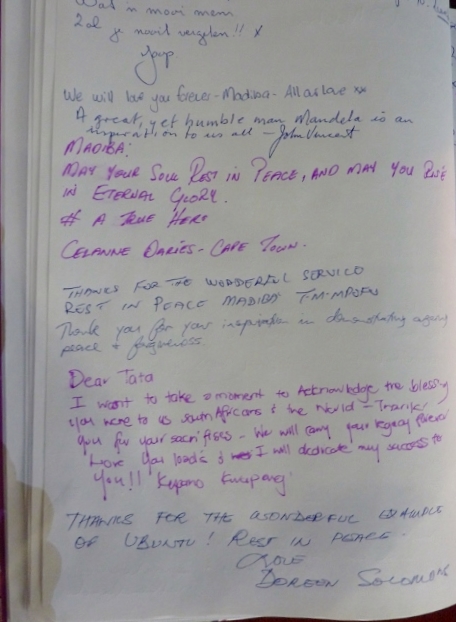 Wat 'n mooi mens
Zal je nooit vergeten!! x
Jaap
We will love you forever - Madiba - All our love xx
A great, yet humble man Mandela is an
inspiration to us all - John Vincent
MADIBA:
MAY YOUR SOUL REST IN PEACE, AND MAY YOU RISE
IN ETERNAL GLORY.
# A TRUE HERO
CELANNE DARIES - CAPE TOWN.
THANKS FOR THE WONDERFUL SERVICE
REST IN PEACE MADIBA
Thank you for your inspiration in demonstrating
peace + forgiveness.
Dear Tata
I want to take a moment to Acknowledge the blessing
you were to us South Africans & the World - Thank
you for your sacrifises - We will carry your legacy forever
Love you loads & I will dedicate my success to
You!!
THANKS FOR THE WONDERFUL EXAMPLE
OF UBUNTU! REST IN PEACE.
LOVE
DOREEN SOLOMONS